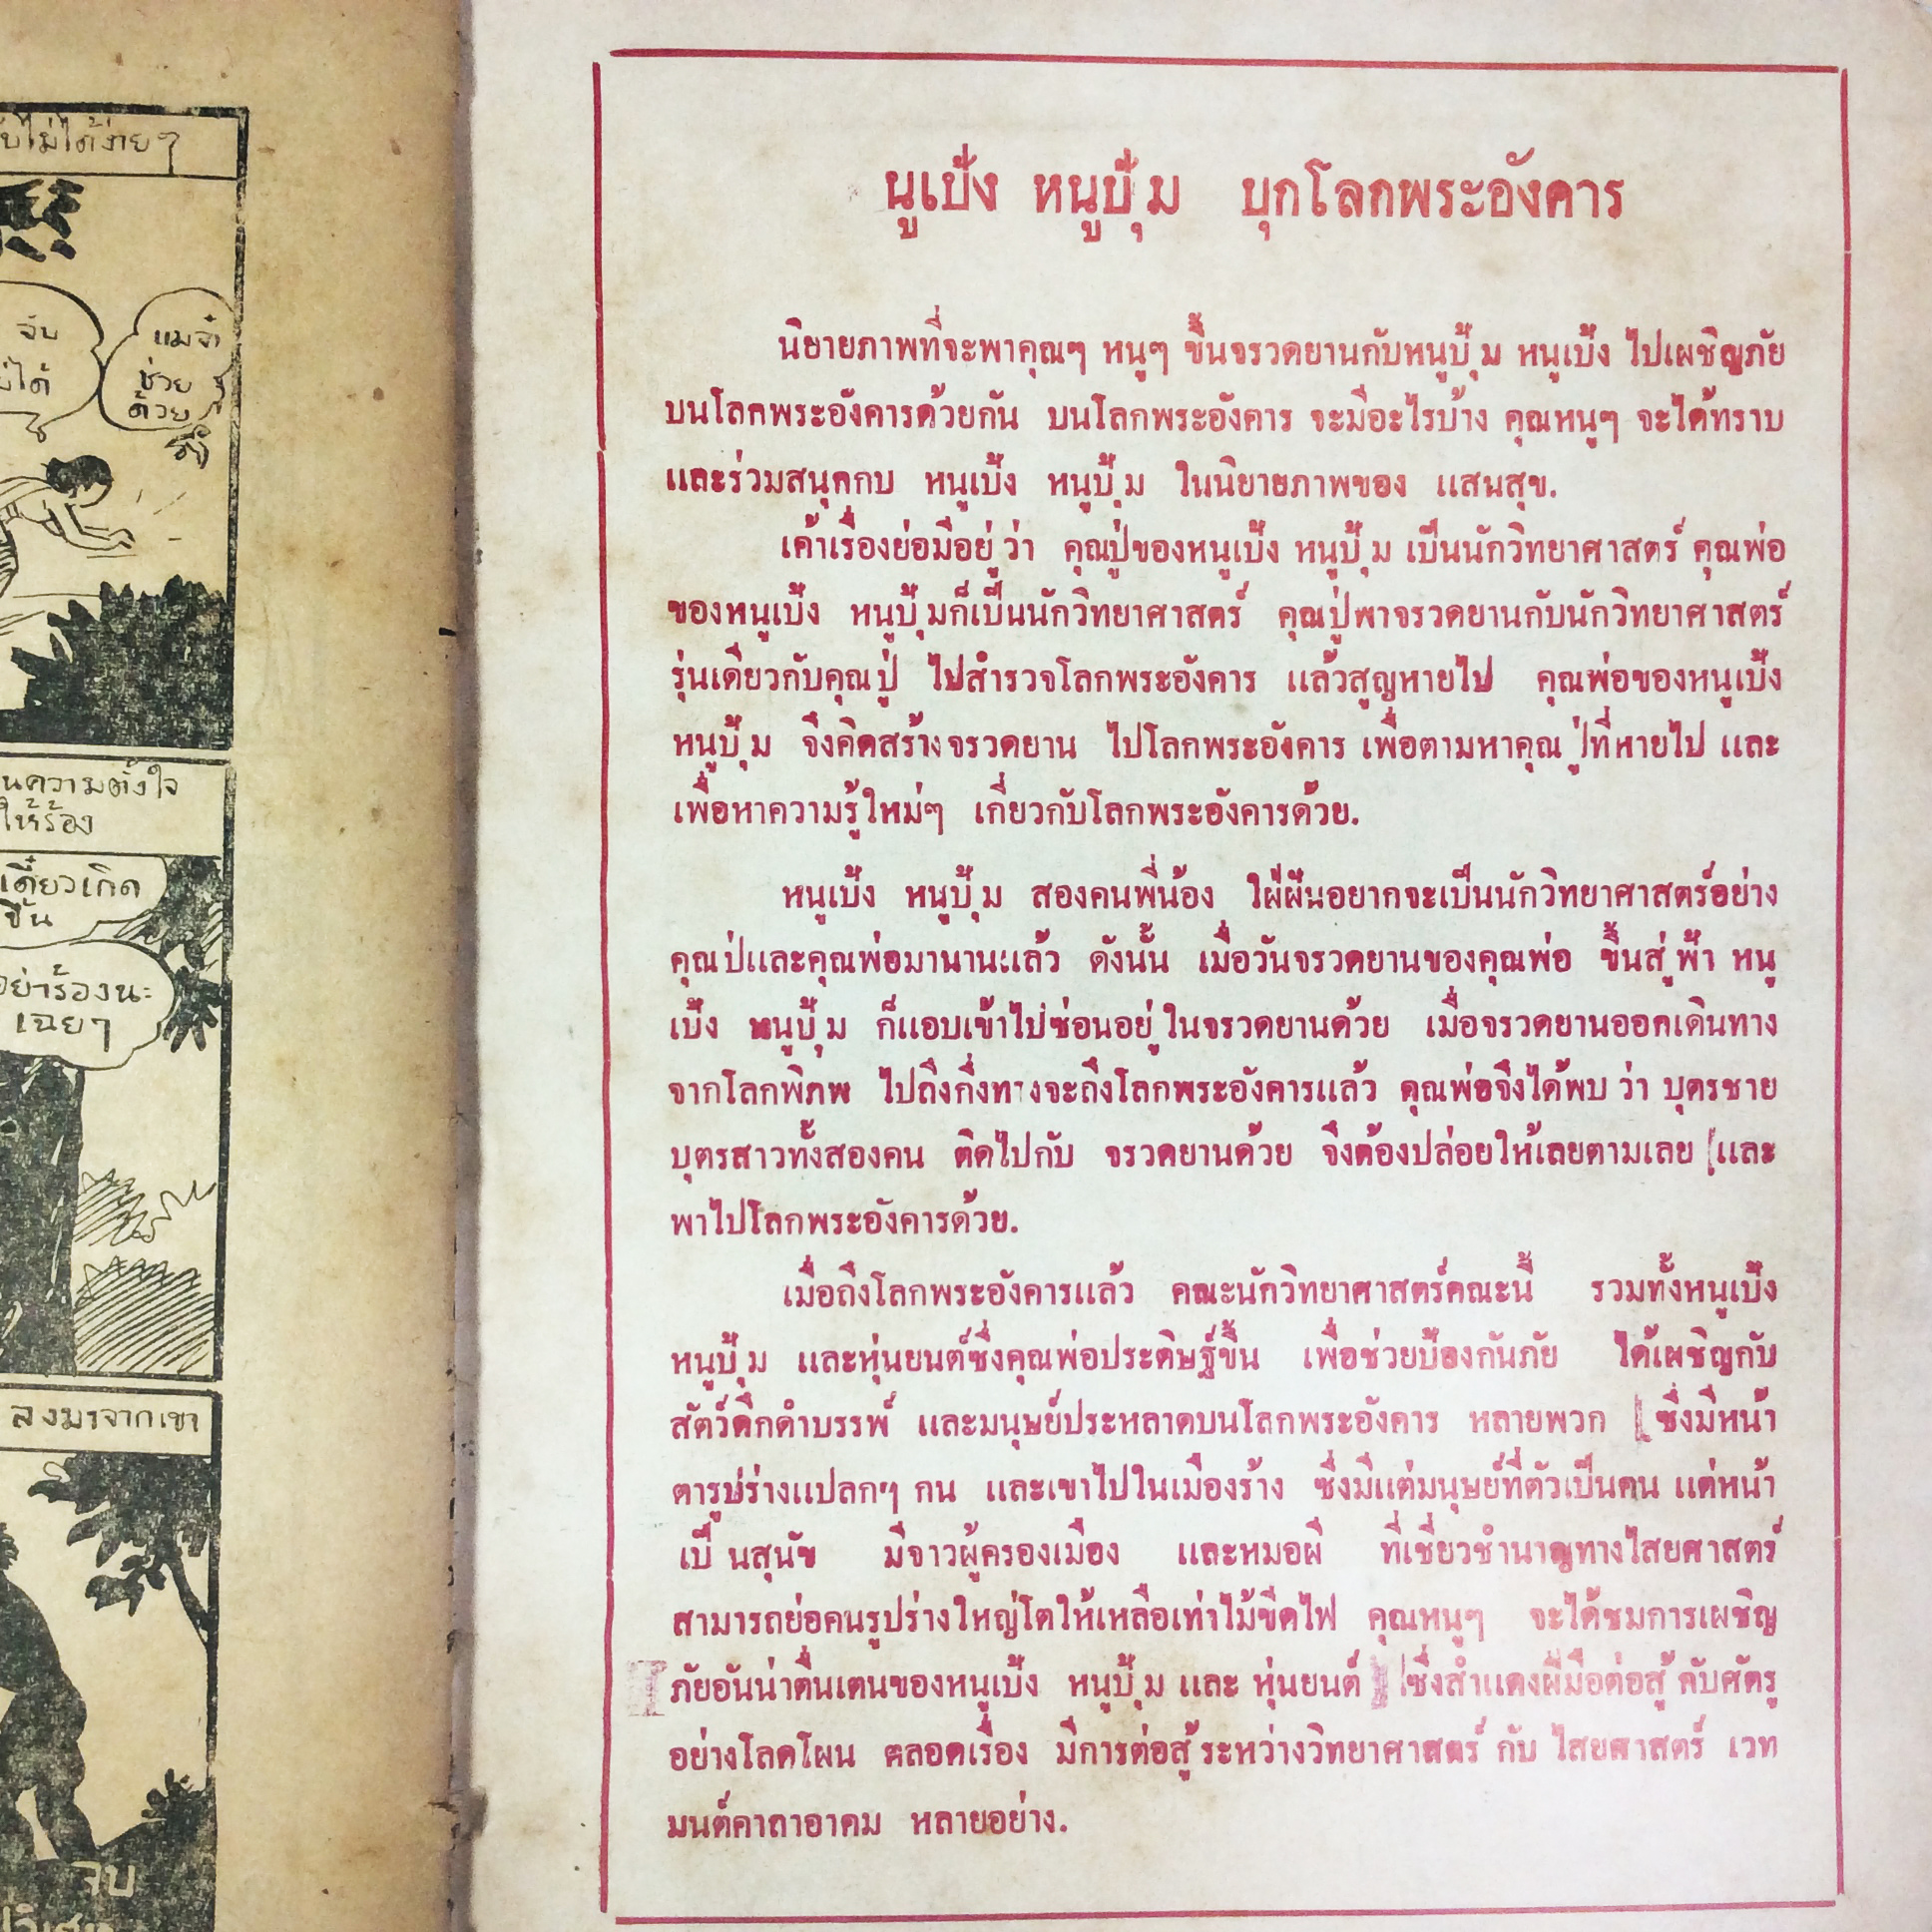 บไม่ได้ง่ายๆ
จับ
ได้
แมจ๋า
ช่วย
ด้วย
นความตั้งใจ
ให้ร้อง
เดี๋ยวเกิด
ขึ้น
อย่าร้องนะ
เฉยๆ
ลงมาจากเขา
จบ
นูเป้ง หนูปุ้ม บุกโลกพระอังคาร
นิยายภาพที่จะพาคุณๆ หนูๆ ขึ้นจรวดยานกับหนูปุ้ม หนูเป้ง ไปเผชิญภัย
บนโลกพระอังคารด้วยกัน บนโลกพระอังคาร จะมีอะไรบ้าง คุณหนูๆ จะได้ทราบ
และร่วมสนุกกบ หนูเป้ง หนูปุ้ม ในนิยายภาพของ แสนสุข.
เค้าเรื่องย่อมีอยู่ว่า คุณปู่ของหนูเป้ง หนูปุ้ม เป็นนักวิทยาศาสตร์ คุณพ่อ
ของหนูเป้ง หนูปุ้มก็เป็นนักวิทยาศาสตร์ คุณปู่พาจรวดยานกับนักวิทยาศาสตร์
รุ่นเดียวกับคุณปู่ ไปสำรวจโลกพระอังคาร แล้วสูญหายไป คุณพ่อของหนูเป้ง
หนูปุ้ม จึงคิดสร้างจรวดยาน ไปโลกพระอังคาร เพื่อตามหาคุณปู่ที่หายไป และ
เพื่อหาความรู้ใหม่ๆ เกี่ยวกับโลกพระอังคารด้วย.
หนูเป้ง หนูปุ้ม สองคนพี่น้อง ใฝ่ฝันอยากจะเป็นนักวิทยาศาสตร์อย่าง
คุณปู่และคุณพ่อมานานแล้ว ดังนั้น เมื่อวันจรวดยานของคุณพ่อ ขึ้นสู่ฟ้า หนู
เป้ง หนูปุ้ม ก็แอบเข้าไปซ่อนอยู่ในจรวดยานด้วย เมื่อจรวดยานออกเดินทาง
จากโลกพิภพ ไปถึงกึ่งทางจะถึงโลกพระอังคารแล้ว คุณพ่อจึงได้พบว่า บุตรชาย
บุตรสาวทั้งสองคน ติดไปกับ จรวดยานด้วย จึงต้องปล่อยให้เลยตามเลย และ
พาไปโลกพระอังคารด้วย.
เมื่อถึงโลกพระอังคารแล้ว คณะนักวิทยาศาสตร์คณะนี้ รวมทั้งหนูเป้ง
หนูปุ้ม และหุ่นยนต์ซึ่งคุณพ่อประดิษฐ์ขึ้น เพื่อช่วยป้องกันภัย ได้เผชิญกับ
สัตว์ดึกดำบรรพ์ และมนุษย์ประหลาดบนโลกพระอังคาร หลายพวก ซึ่งมีหน้า
ตารูปร่างแปลกๆ กน และเขาไปในเมืองร้าง ซึ่งมีแต่มนุษย์ที่ตัวเป็นคน แต่หน้า
เป็นสุนัข มีจาวผู้ครองเมือง และหมอผี ที่เชี่ยวชำนาญทางไสยศาสตร์
สามารถย่อคนรูปร่างใหญ่โตให้เหลือเท่าไม้ขีดไฟ คุณหนูๆ จะได้ชมการเผชิญ
ภัยอันน่าตื่นเตนของหนูเป้ง หนูปุ้ม และ หุ่นยนต์ ซึ่งสำแดงฝีมือต่อสู้กับศัตรู
อย่างโลดโผน ตลอดเรื่อง มีการต่อสู้ระหว่างวิทยาศาสตร์ กับ ไสยศาสตร์ เวท
มนต์คาถาอาคม หลายอย่าง.